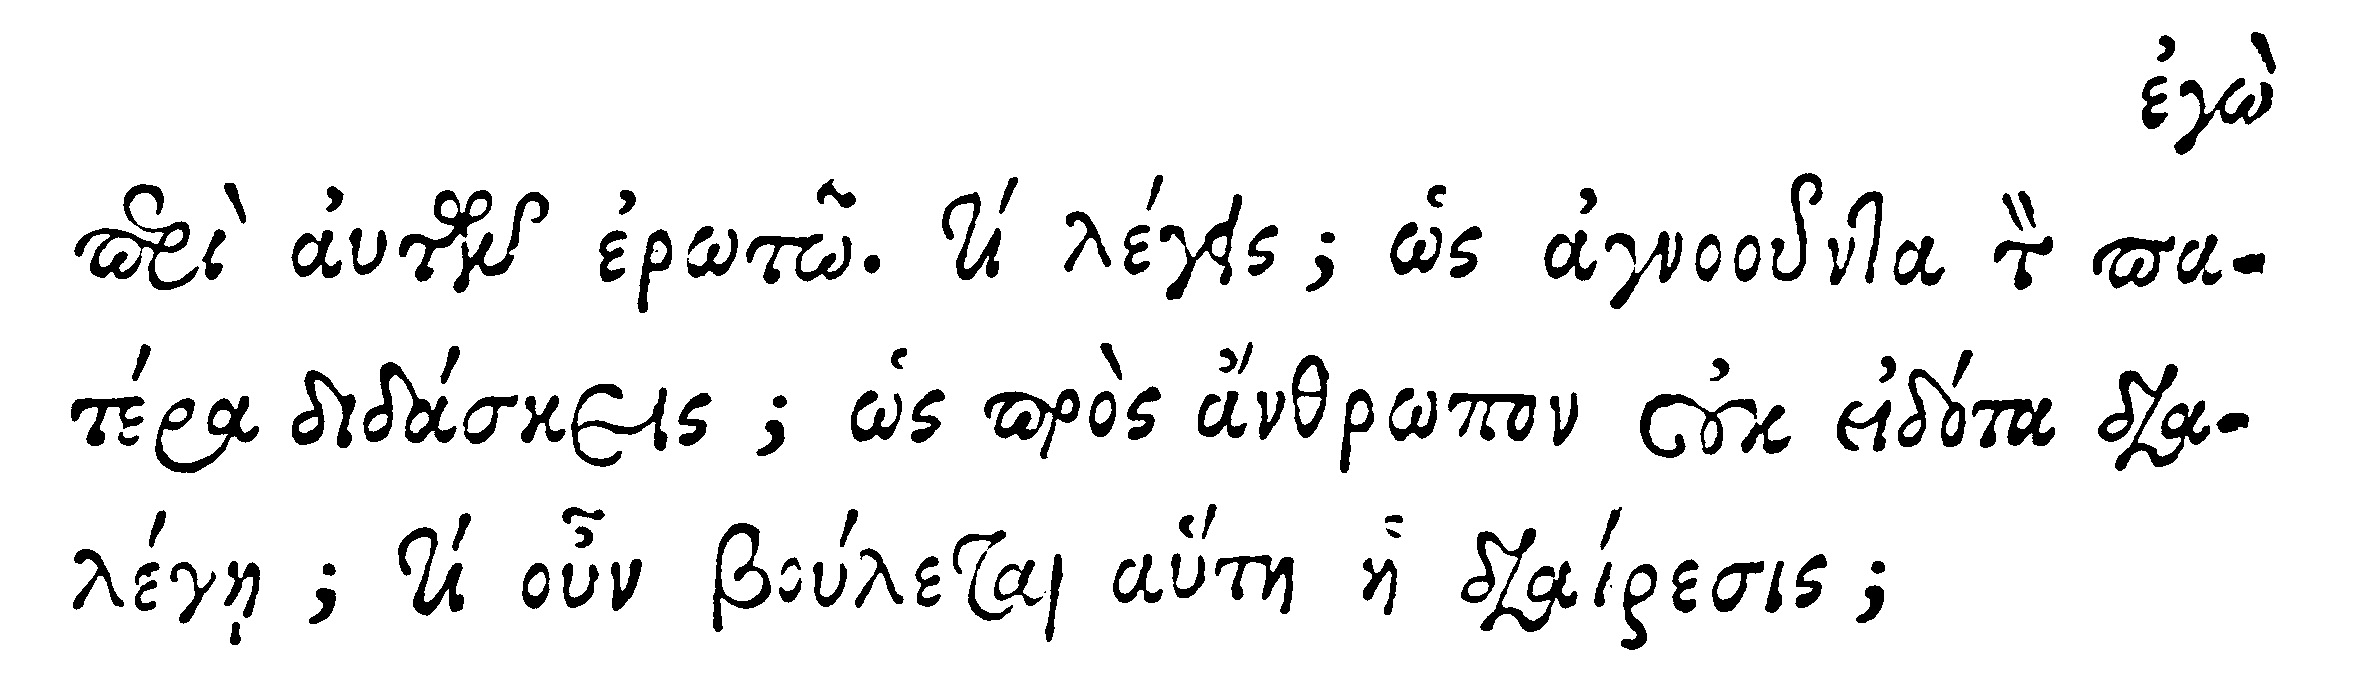 ἐγὼ
περὶ ἀυτῶν ἐρωτῶ. τί λέγεις; ὡς ἀγνοοῦντα τὸν πα-
τέρα διδάσκεις; ὡς πρὸς ἄνθρωπον οὐκ εἰδότα δια-
λέγῃ; τί οὖν βούλεται αὕτη ἡ διαίρεσις;